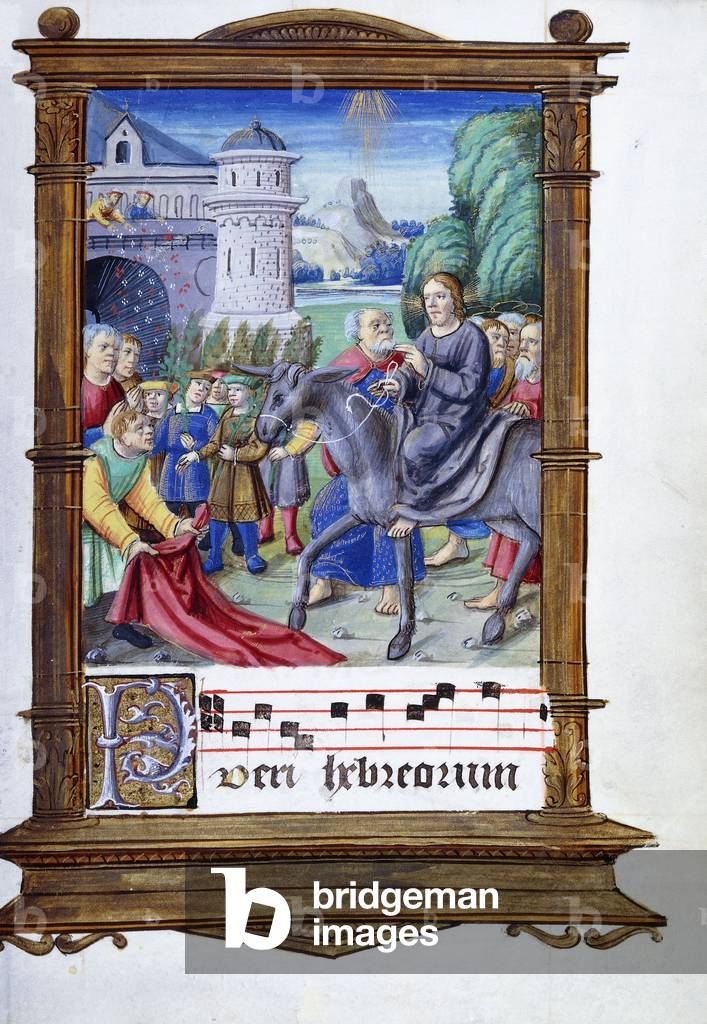 Pueri hebreorum
b bridgeman
images